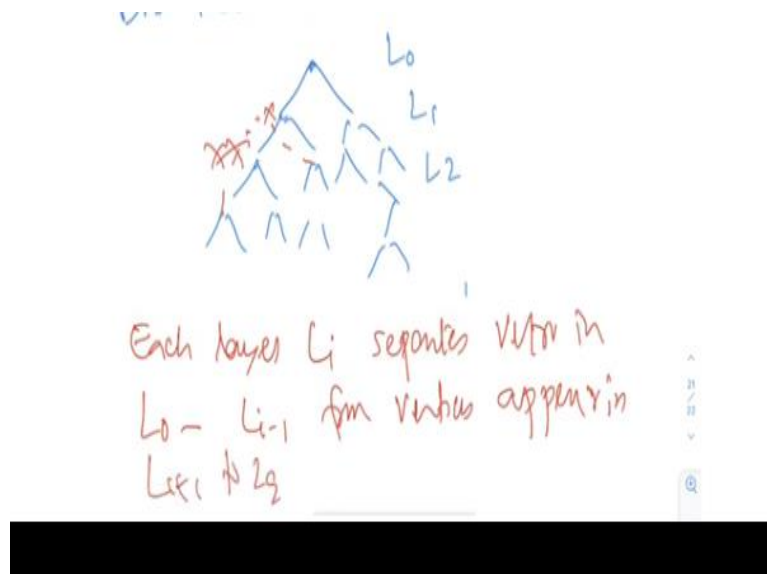 L0
L1
L2
Each layer Li separates vertex in
L0 - Li-1 from vertices appear in
Li+1 to
21
/
22